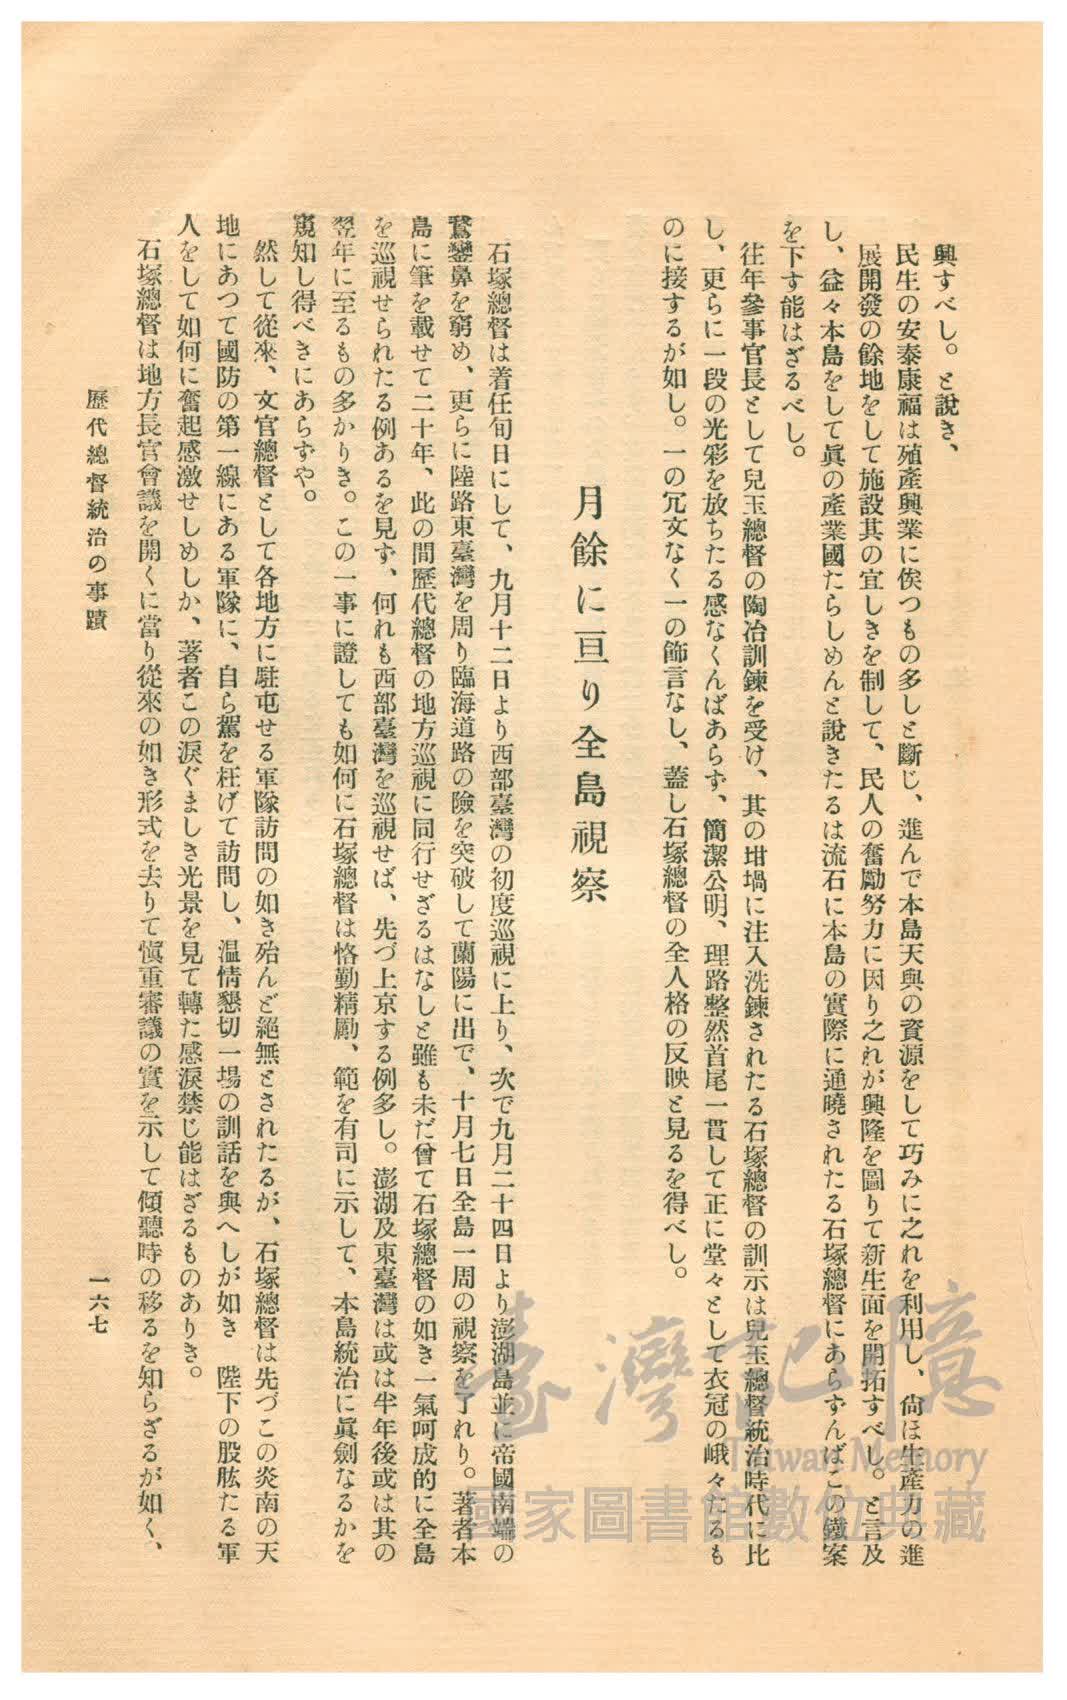 興すべし。と說き、
民生の安泰康福は殖產興業に俟つもの多しと斷じ、進んで本島天與の資源をして巧みに之れを利用し、尙ほ生產力の進
展開發の餘地をして施設其の宜しきを制して、民人の奮勵努力に因り之れが興隆を圖りて新生面を開拓すべし。と言及
し、益々本島をして眞の產業國たらしめんと說きたるは流石に本島の實際に通曉されたる石塚總督にあらずんばこの鐵案
を下す能はざるべし。
往年參事官長として兒玉總督の陶冶訓鍊を受け、其の坩堝に注入洗鍊されたる石塚總督の訓示は兒玉總督統治時代に比
し、更らに一段の光彩を放ちたる感なくんばあらず、簡潔公明、理路整然首尾一貫して正に堂々として衣冠の峨々たるも
のに接するが如し。一の冗文なく一の飾言なし、蓋し石塚總督の全人格の反映と見るを得べし。
月餘に亘り全島視察
石塚總督は着任旬日にして、九月十二日より西部臺灣の初度巡視に上り、次で九月二十四日より澎湖島並に帝國南端の
鵞鑾鼻を窮め、更らに陸路東臺灣を周り臨海道路の險を突破して蘭陽に出で、十月七日全島一周の視察を了れり。著者本
島に筆を載せて二十年、此の間歷代總督の地方巡視に同行せざるはなしと雖も未だ曾て石塚總督の如き一氣呵成的に全島
を巡視せられたる例あるを見ず、何れも西部臺灣を巡視せば、先づ上京する例多し。澎湖及東臺灣は或は半年後或は其の
翌年に至るもの多かりき。この一事に證しても如何に石塚總督は恪勤精勵、範を有司に示して、本島統治に眞劍なるかを
窺知し得べきにあらずや。
然して從來、文官總督として各地方に駐屯せる軍隊訪問の如き殆んど絕無とされたるが、石塚總督は先づこの炎南の天
地にあつて國防の第一線にある軍隊に、自ら駕を枉げて訪問し、溫情懇切一場の訓話を與へしが如き　陛下の股肱たる軍
人をして如何に奮起感激せしめしか、著者この淚ぐましき光景を見て轉た感淚禁じ能はざるものありき。
石塚總督は地方長官會議を開くに當り從來の如き形式を去りて愼重審議の實を示して傾聽時の移るを知らざるが如く、
歷代總督統治の事蹟
一六七
臺灣記憶
Taiwan Memory
國家圖書館數位典藏